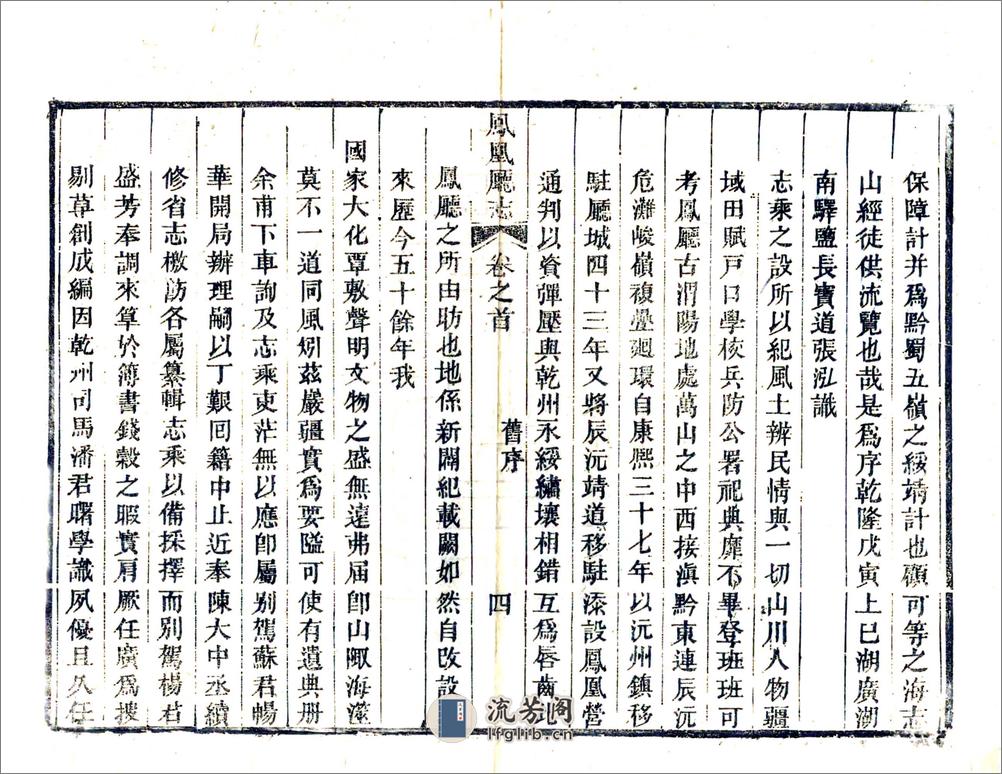 保障計并爲黔蜀五嶺之綏靖計也顧可等之海志
山經徒供流覽也哉是爲序乾隆戊寅上巳湖廣湖
南驛鹽長寶道張泓識
志乘之設所以紀風土辨民情與一切山川人物疆
域田賦戸口學校兵防公署祀典靡不畢登班班可
考鳳廳古渭陽地處萬山之中西接滇黔東連辰沅
危灘峻嶺複疊廻環自康熙三十七年以沅州鎮移
駐廳城四十三年又將辰沅靖道移駐添設鳳凰營
通判以資彈壓與乾州永綏繡壤相錯互爲唇齒
鳳凰廳志
卷之首
舊序
四
鳳廳之所由昉也地係新闢紀載闕如然自改設
來歷今五十餘年我
國家大化覃敷聲明文物之盛無遠弗届卽山陬海澨
莫不一道同風矧茲巖疆實爲要隘可使有遺典册
余甫下車詢及志乘吏茫無以應卽屬别駕蘇君暢
華開局辦理嗣以丁艱回籍中止近奉陳大中丞續
修省志檄訪各屬纂輯志乘以備採擇而别駕楊君
盛芳奉調來篆於簿書錢穀之暇實肩厥任廣爲搜
剔草創成編因乾州司馬潘君曙學識夙優且久任
流芳阁
lfglib.cn